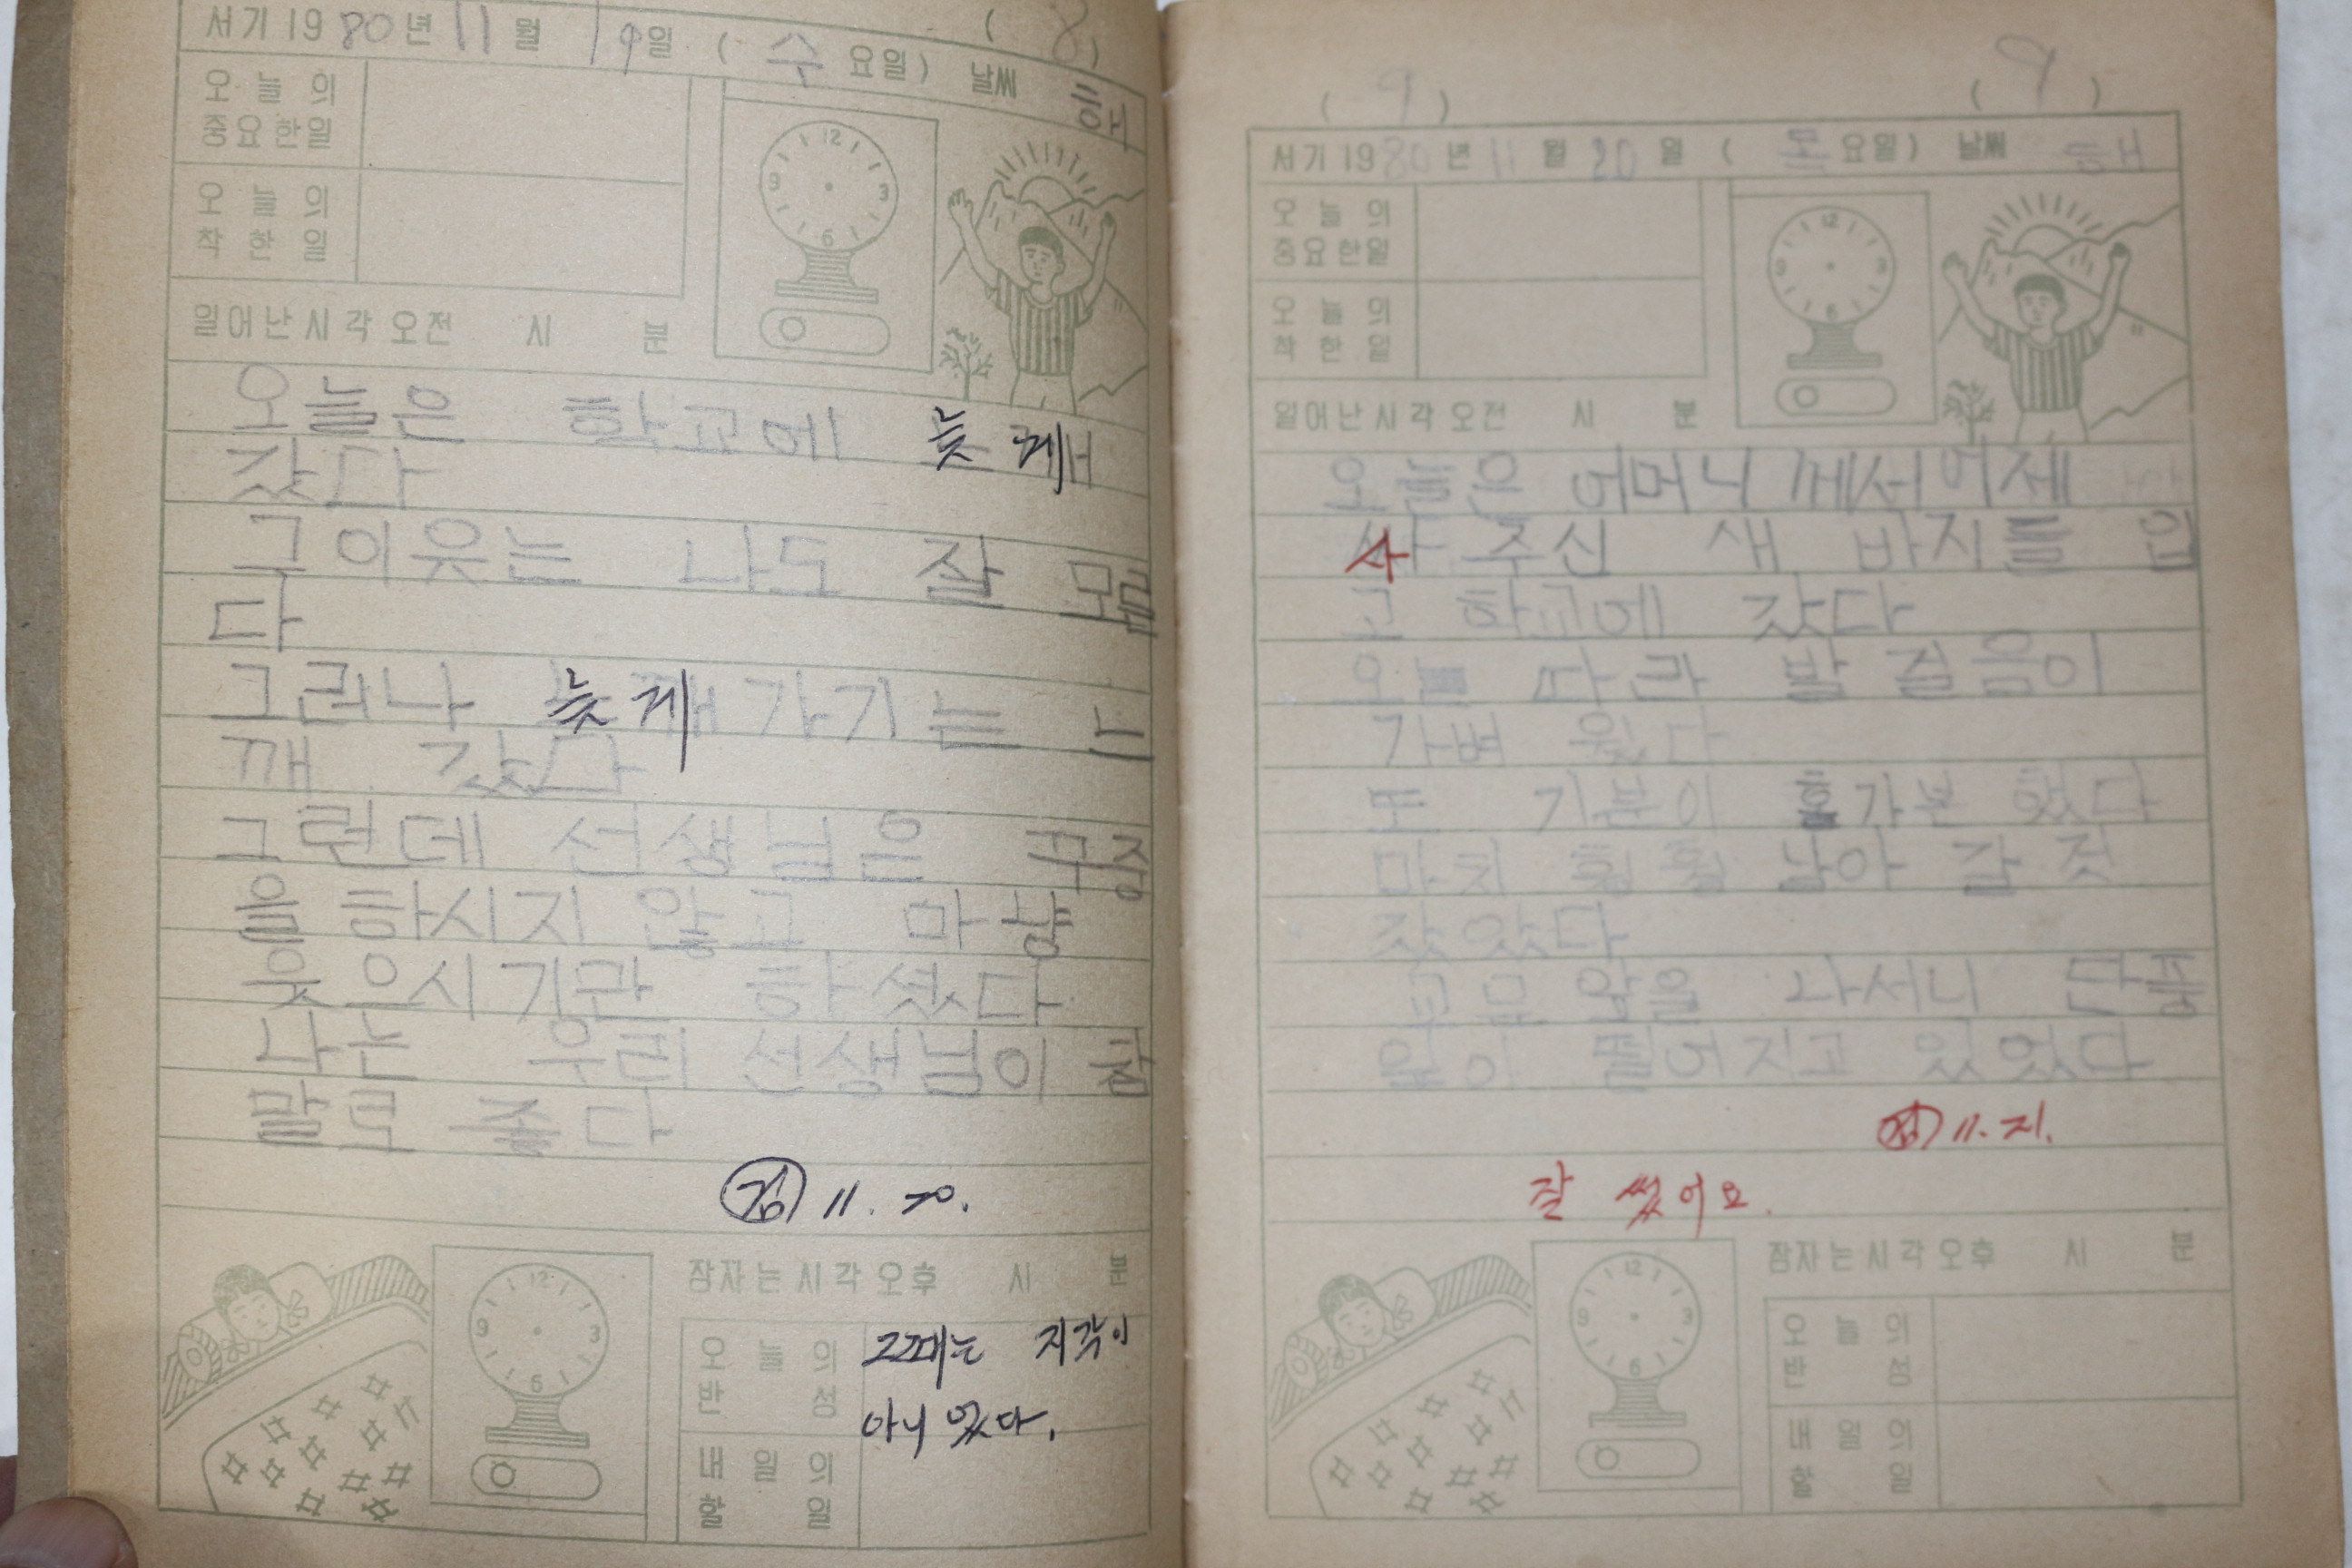 ( 8 )
서기 1980년 11월 19일 ( 수 요일) 날씨 해
오늘의
중요한일
오늘의
착한일
12
9 3
6
일어난시각 오전 시 분
오늘은 학교에 늦게
갔다
그이웃는 나도 잘 모름
다
그러나 늦게 가기는 느
깨 갔다
그런데 선생님은 꾸중
을 하시지 않고 마냥
웃으시기만 하셨다
나는 우리 선생님이 참
말로 좋다
검 11. 20.
12
9 3
6
잠자는시각 오후 시 분
오늘의
반성
그때는 지각이
아니었다.
내일의
할일
( 9 ) ( 9 )
서기 1980년 11월 20일 ( 목 요일) 날씨 해
오늘의
중요한일
오늘의
착한일
12
9 3
6
일어난시각 오전 시 분
오늘은 어머니께서 어제
사 주신 새 바지를 입
고 학교에 갔다
오늘 다라 발걸음이
가벼웠다
또 기분이 홀가분했다
마치 훨훨 날아갈 것
갔았다
교문 앞을 나서니 단풍
잎이 떨어지고 있었다
검 11. 21.
잘 썼어요.
12
9 3
6
잠자는시각 오후 시 분
오늘의
반성
내일의
할일